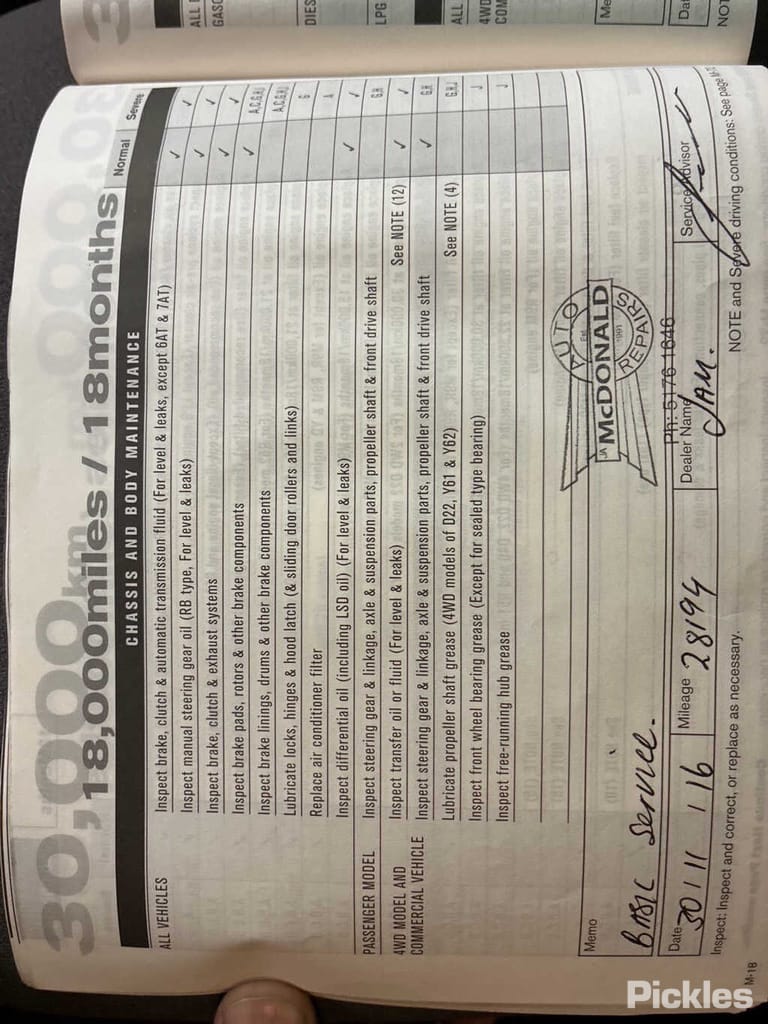 30,000km
18,000miles / 18months
CHASSIS AND BODY MAINTENANCE
Normal Severe
ALL VEHICLES
Inspect brake, clutch & automatic transmission fluid (For level & leaks, except 6AT & 7AT) ✓ ✓
Inspect manual steering gear oil (RB type, For level & leaks) ✓ ✓
Inspect brake, clutch & exhaust systems ✓ ✓
Inspect brake pads, rotors & other brake components ✓
Inspect brake linings, drums & other brake components
Lubricate locks, hinges & hood latch (& sliding door rollers and links) G
Replace air conditioner filter A
Inspect differential oil (including LSD oil) (For level & leaks) ✓ ✓
PASSENGER MODEL Inspect steering gear & linkage, axle & suspension parts, propeller shaft & front drive shaft G,H
4WD MODEL AND Inspect transfer oil or fluid (For level & leaks) See NOTE (12) ✓ ✓
COMMERCIAL VEHICLE Inspect steering gear & linkage, axle & suspension parts, propeller shaft & front drive shaft ✓ G,H
Lubricate propeller shaft grease (4WD models of D22, Y61 & Y62) See NOTE (4) G,H,J
Inspect front wheel bearing grease (Except for sealed type bearing) J
Inspect free-running hub grease J
Memo
BASIC SERVICE.
JA McDONALD
AUTO REPAIRS
Est. 1991
Ph: 5176 1646
Date 30 / 11 / 16
Mileage 28194
Dealer Name JAM.
Service Advisor
Inspect: Inspect and correct, or replace as necessary.
NOTE and Severe driving conditions: See page
M-18
ALL
GASO
DIES
LPG
ALL
4WD
COM
Me
Dat
NOT
Pickles